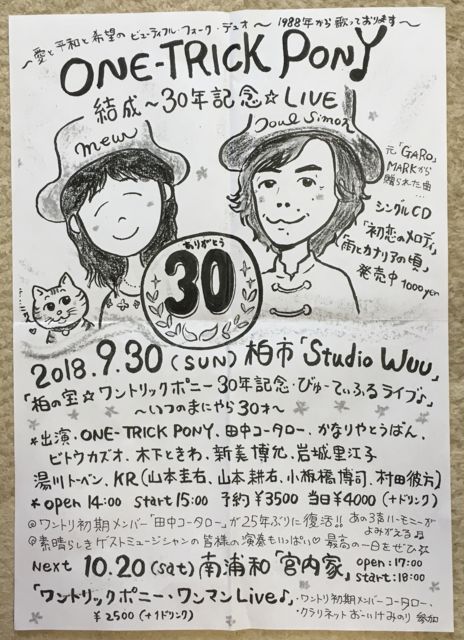 ～愛と平和と希望のビューティフル・フォーク・デュオ～ 1988年から歌っております～
ONE-TRICK PONY
結成～30年記念☆LIVE
mew
Paul Simon
元「GARO」
MARKから
贈られた曲…
シングルCD
「初恋のメロディ」
「雨とカナリアの頃」
発売中 1000yen
ありがとう
30
2018.9.30 (SUN) 柏市「Studio Wuu」
「柏の宝☆ワントリックポニー30年記念・びゅーてぃふるライブ♪」
～いつのまにやら30才～
*出演・ONE-TRICK PONY、田中コータロー、かなりやとうばん、
ビトウカズオ、木下ときわ、新美博允、岩城里江子
湯川トーベン、KR(山本圭右、山本耕右、小板橋博司、村田彼方)
* open 14:00 start 15:00 予約¥3500 当日¥4000 (+ドリンク)
@ワントリ初期メンバー「田中コータロー」が25年ぶりに復活!! あの3声ハーモニーが
よみがえる♫
@素晴らしきゲストミュージシャンの皆様の演奏もいっぱい♡ 最高の一日をぜひ♫
Next 10.20 (sat) 南浦和「宮内家」 open:17:00
start:18:00
「ワントリックポニー・ワンマンLive♪」
・ワントリ初期メンバーコータロー、
¥2500 (+1ドリンク)
・クラリネットおーいけみのり 参加